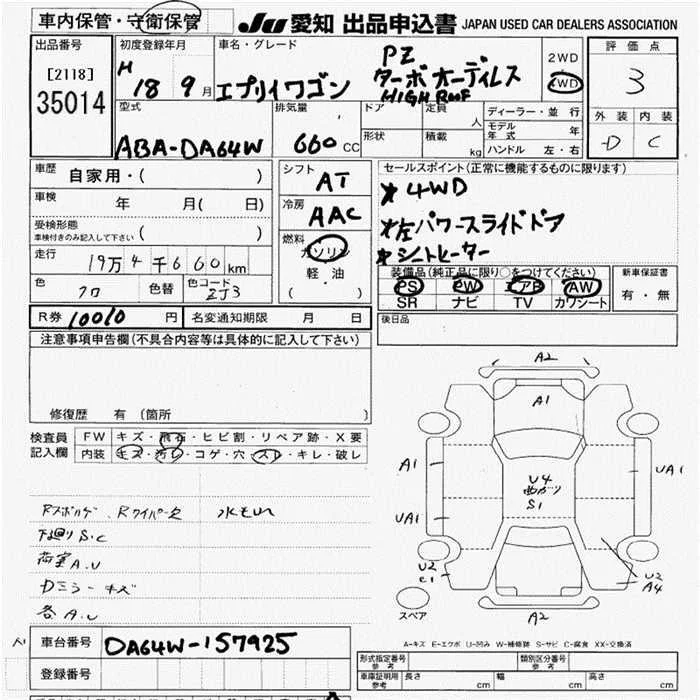 車内保管・守衛保管
JU 愛知 出品申込書 JAPAN USED CAR DEALERS ASSOCIATION
出品番号
[2118]
35014
初度登録年月
H 18 9月
車名・グレード
エブリイワゴン
PZ
ターボ
HIGH ROOF
2WD
4WD
評価点
3
外装 内装
D C
型式
ABA-DA64W
排気量
660 CC
ドア
形状
定員 人
積載 kg
ディーラー・並行
モデル年式 年
ハンドル 左・右
車歴
自家用・( )
車検
年 月( 日)
受検形態
車検付きのみ記入して下さい ( )
走行
19万4千660km
色
クロ
色替
色コード
ZJ3
シフト
AT
冷房
AAC
燃料
ガソリン
軽・油
( )
セールスポイント(正常に機能するものに限ります)
4WD
左パワースライドドア
シートヒーター
装備品(純正品に限り○をつけてください)
PS PW エアB AW
SR ナビ TV カワシート
新車保証書
有・無
R券 10010 円
名変通知期限 月 日
後日品
注意事項申告欄(不具合内容等は具体的に記入して下さい)
修復歴 有 (箇所 )
検査員記入欄
FW キズ・飛石・ヒビ割・リペア跡・X要
内装 キズ・汚レ・コゲ・穴・スレ・キレ・破レ
下廻りS.C
荷室A.U
Dミラーキズ
各A.U
A2
A1
A1
UA1
U4
曲ガリ
S1
UA1
U2
C1
U2
A4
A2
スペア
A-キズ E-エクボ U-凹み W-補修跡 S-サビ C-腐食 XX-交換済
A1
車台番号
DA64W-157925
登録番号
形式指定番号 参考
類別区分番号 参考
車庫証明用 参考
長さ cm
幅 cm
高さ cm